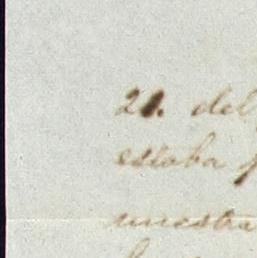 21. del
estaba
nuestra